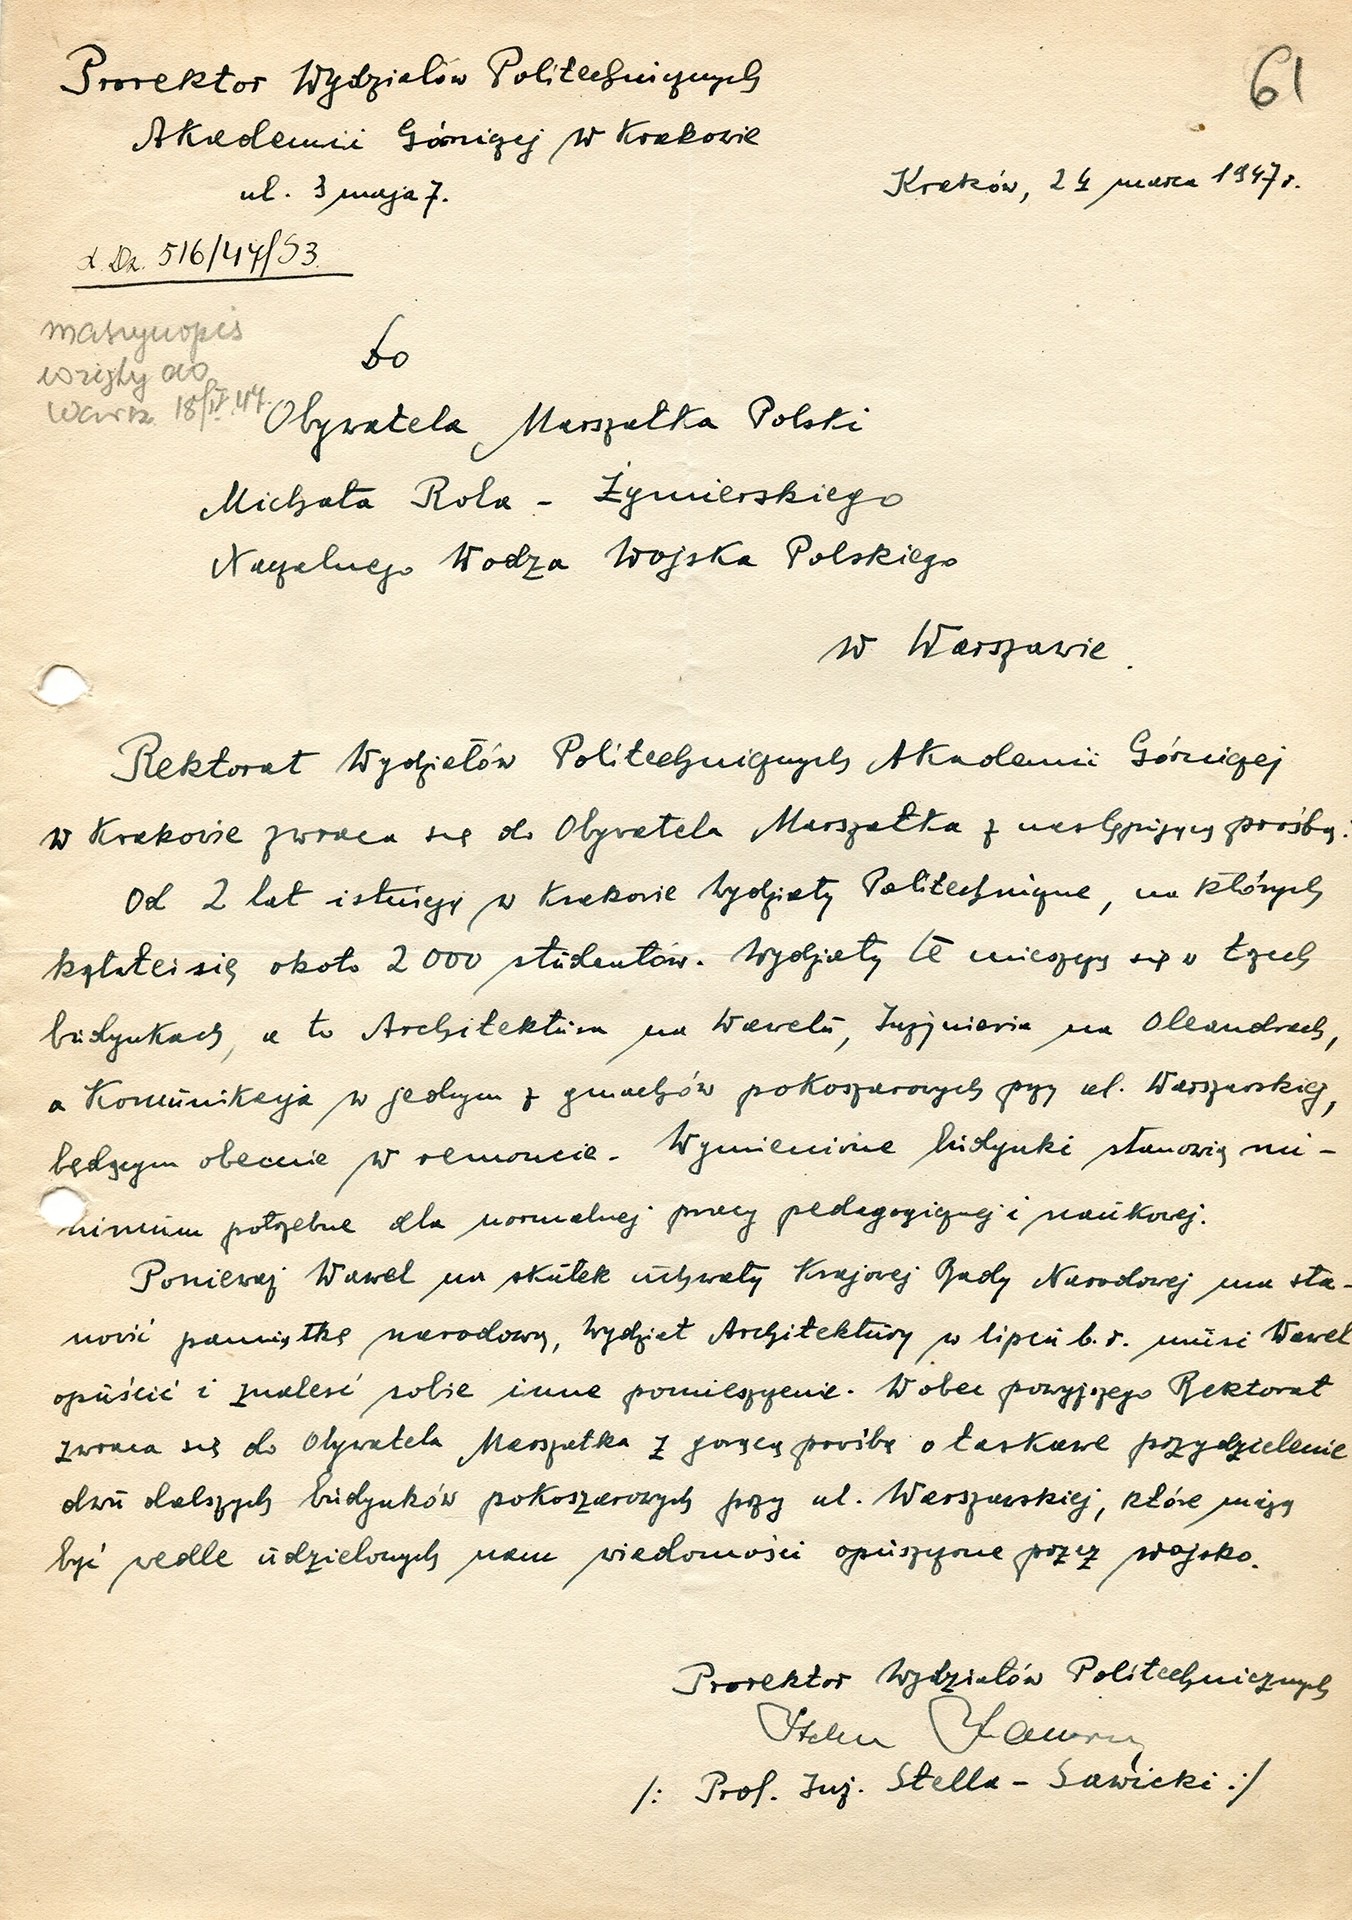 Prorektor Wydziałów Politechnicznych
61
Akademii Górniczej w Krakowie
Kraków, 24 marca 1947 r.
ul. 3 maja 7.
L. Dz. 516/47/S3
maszynopis
wzięty do
Warsz. 18/IV.47.
Do
Obywatela Marszałka Polski
Michała Rola - Żymierskiego
Naczelnego Wodza Wojska Polskiego
w Warszawie.
Rektorat Wydziałów Politechnicznych Akademii Górniczej
w Krakowie zwraca się do Obywatela Marszałka z następującą prośbą:
Od 2 lat istnieją w Krakowie Wydziały Politechniczne, na których
kształci się około 2000 studentów. Wydziały te mieszczą się w trzech
budynkach, a to Architektura na Wawelu, Inżynieria na Oleandrach,
a Komunikacja w jednym z gmachów pokoszarowych przy ul. Warszawskiej,
będącym obecnie w remoncie. Wymienione budynki stanowią mi-
nimum potrzebne dla normalnej pracy pedagogicznej i naukowej.
Ponieważ Wawel na skutek uchwały Krajowej Rady Narodowej ma sta-
nowić pamiątkę narodową, Wydział Architektury w lipcu b.r. musi Wawel
opuścić i znaleść sobie inne pomieszczenie. Wobec powyższego Rektorat
zwraca się do Obywatela Marszałka z gorącą prośbą o łaskawe przydzielenie
dwu dalszych budynków pokoszarowych przy ul. Warszawskiej, które mają
być wedle udzielonych nam wiadomości opuszczone przez wojsko.
Prorektor Wydziałów Politechnicznych
Stella Sawicki
/: Prof. Inż. Stella - Sawicki :/